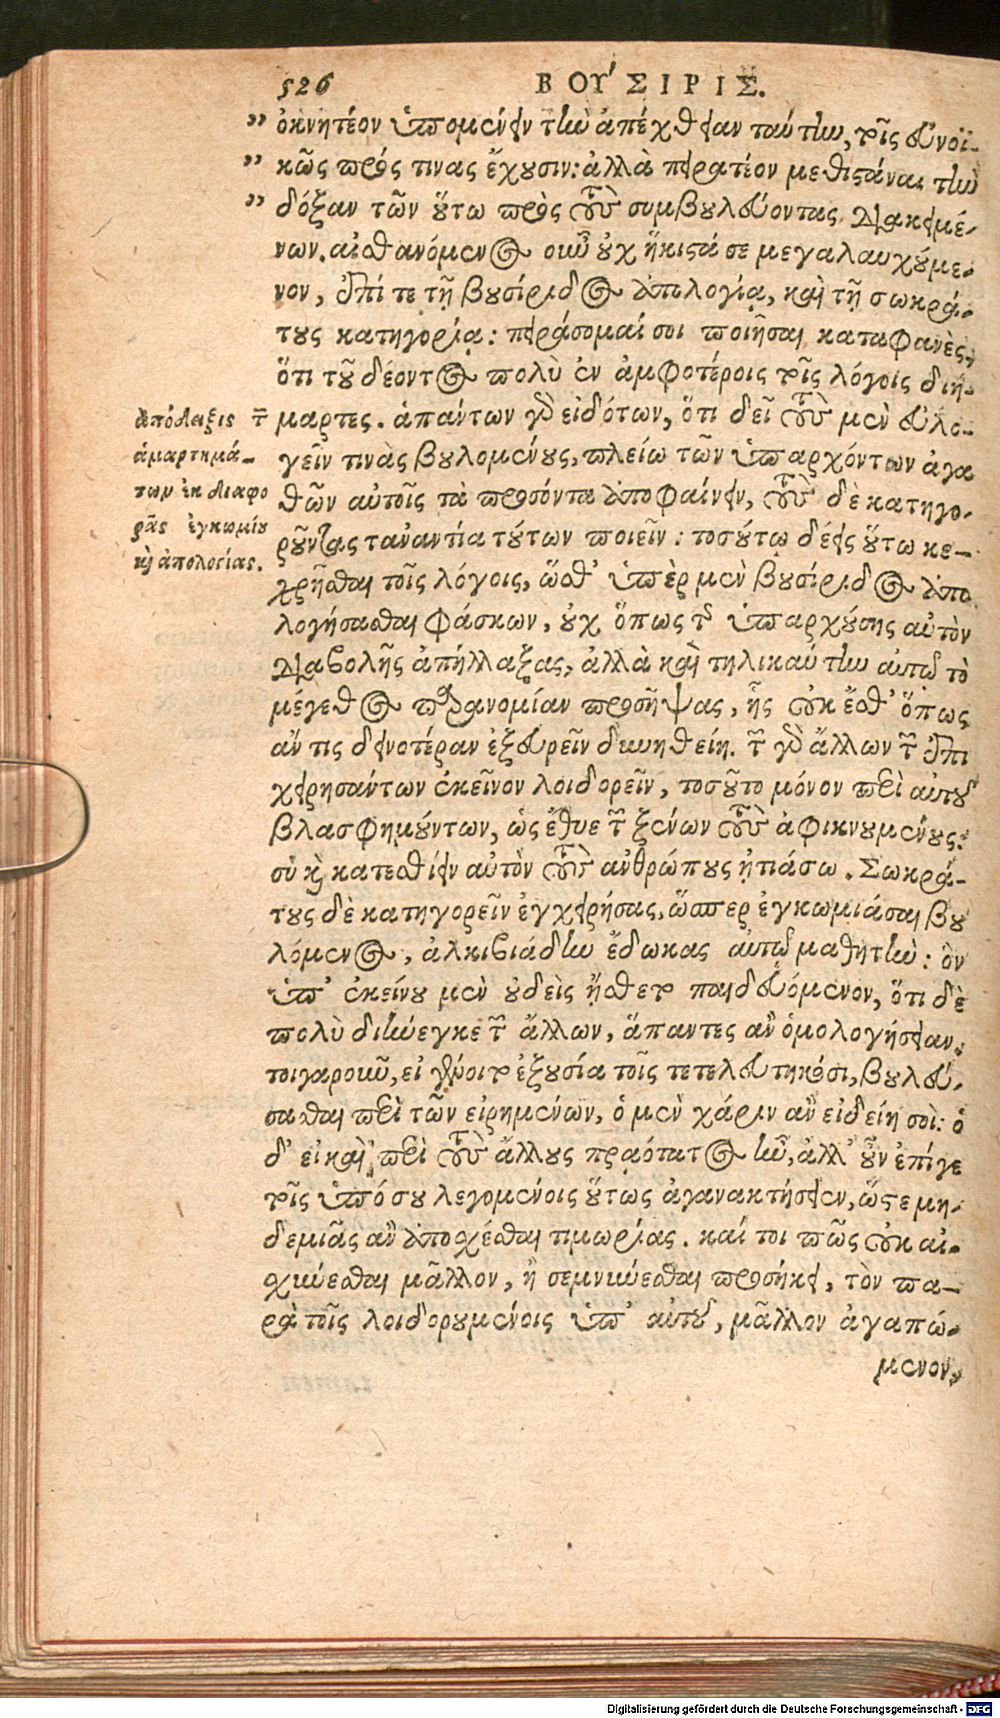 526 ΒΟΎΣΙΡΙΣ.
" ὀκνητέον ὑπομένειν τὴν ἀπέχθειαν ταύτην, τοῖς εὐνοϊ-
" κῶς πρός τινας ἔχουσιν: ἀλλὰ πειρατέον μεθιστάναι τὴν
" δόξαν τῶν οὕτω πρὸς τοὺς συμβουλεύοντας διακειμέ-
νων. αἰσθανόμενος οὖν οὐχ ἥκιστά σε μεγαλαυχούμε-
νον, ἐπί τε τῇ βουσίριδος ἀπολογίᾳ, καὶ τῇ σωκρά-
τους κατηγορίᾳ: πειράσομαί σοι ποιῆσαι καταφανὲς,
ὅτι τοῦ δέοντος πολὺ ἐν ἀμφοτέροις τοῖς λόγοις διή-
μαρτες. ἁπάντων γὰρ εἰδότων, ὅτι δεῖ τοὺς μὲν εὐλο-
γεῖν τινὰς βουλομένους, πλείω τῶν ὑπαρχόντων ἀγα
θῶν αὐτοῖς τὰ προσόντα ἀποφαίνειν, τοὺς δὲ κατηγο-
ροῦντας τἀναντία τούτων ποιεῖν: τοσούτῳ δέεις οὕτω κε-
χρῆσθαι τοῖς λόγοις, ὥσθ' ὑπὲρ μὲν βουσίριδος ἀπο
λογήσασθαι φάσκων, οὐχ ὅπως τῆς ὑπαρχούσης αὐτὸν
διαβολῆς ἀπήλλαξας, ἀλλὰ καὶ τηλικαύτην αὐτῷ τὸ
μέγεθος παρανομίαν προσῆψας, ἧς οὐκ ἔσθ' ὅπως
ἄν τις δεινοτέραν ἐξευρεῖν δυνηθείη. τῶν γὰρ ἄλλων τῶν ἐπι
χειρησάντων ἐκεῖνον λοιδορεῖν, τοσοῦτο μόνον περὶ αὐτοῦ
βλασφημούντων, ὡς ἔθυε τῶν ξένων τοὺς ἀφικνουμένους:
σὺ καὶ κατεσθίειν αὐτὸν τοὺς ἀνθρώπους ᾐτιάσω. Σωκρά-
τους δὲ κατηγορεῖν ἐγχειρήσας, ὥσπερ ἐγκωμιάσαι βου
λόμενος, ἀλκιβιάδην ἔδωκας αὐτῷ μαθητήν: ὃν
ὑπ' ἐκείνου μὲν οὐδεὶς ᾔσθετο παιδευόμενον, ὅτι δὲ
πολὺ διήνεγκε τῶν ἄλλων, ἅπαντες ἂν ὁμολογήσειαν.
τοιγαροῦν, εἰ γένοιτο ἐξουσία τοῖς τετελευτηκόσι, βουλεύ-
σασθαι περὶ τῶν εἰρημένων, ὁ μὲν χάριν ἂν εἰδείη σοὶ: ὁ
δ' εἰ καὶ περὶ τοὺς ἄλλους πραότατος ἦν, ἀλλ' οὖν ἐπί γε
τοῖς ὑπό σου λεγομένοις οὕτως ἀγανακτήσειεν, ὥστε μη-
δεμιᾶς ἂν ἀποσχέσθαι τιμωρίας. καί τοι πῶς οὐκ αἰ-
σχύνεσθαι μᾶλλον, ἢ σεμνύνεσθαι προσήκει, τὸν πα-
ρὰ τοῖς λοιδορουμένοις ὑπ' αὐτοῦ, μᾶλλον ἀγαπώ-
μενον,
ἀπόδειξις τῶν
ἁμαρτημά-
των ἐκ διαφο
ρᾶς ἐγκωμίου
καὶ ἀπολογίας.
Digitalisierung gefördert durch die Deutsche Forschungsgemeinschaft - DFG